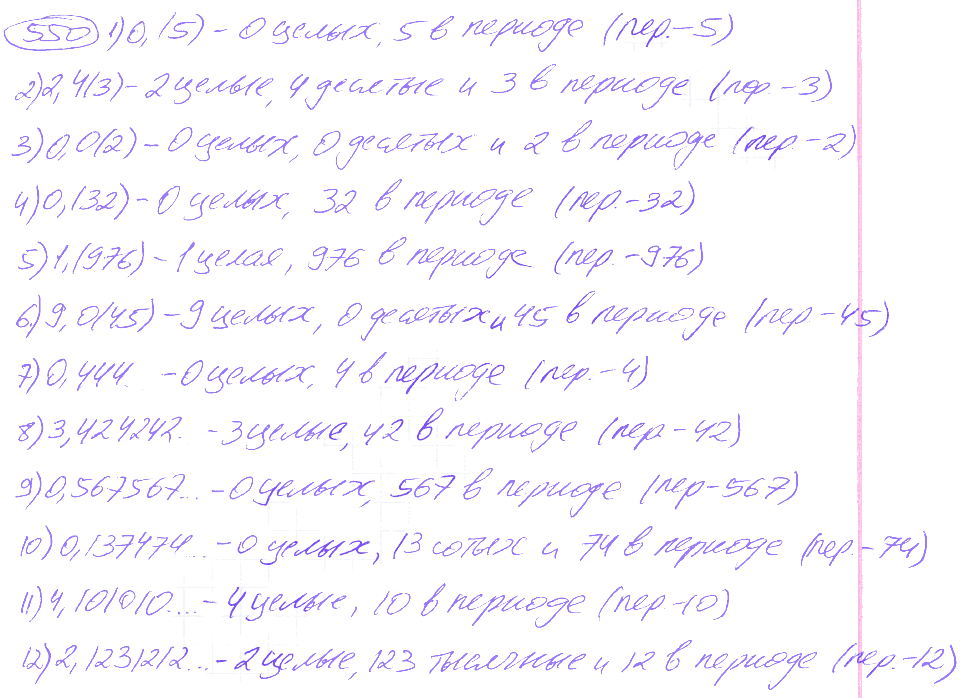 550 1) 0,(5) - 0 целых, 5 в периоде (пер.-5)
2) 2,4(3) - 2 целые, 4 десятые и 3 в периоде (пер.-3)
3) 0,0(2) - 0 целых, 0 десятых и 2 в периоде (пер.-2)
4) 0,(32) - 0 целых, 32 в периоде (пер.-32)
5) 1,(976) - 1 целая, 976 в периоде (пер.-976)
6) 9,0(45) - 9 целых, 0 десятых и 45 в периоде (пер-45)
7) 0,444... - 0 целых, 4 в периоде (пер.-4)
8) 3,424242... - 3 целые, 42 в периоде (пер.-42)
9) 0,567567... - 0 целых, 567 в периоде (пер-567)
10) 0,137474... - 0 целых, 13 сотых и 74 в периоде (пер.-74)
11) 4,101010... - 4 целые, 10 в периоде (пер.-10)
12) 2,1231212... - 2 целые, 123 тысячные и 12 в периоде (пер.-12)